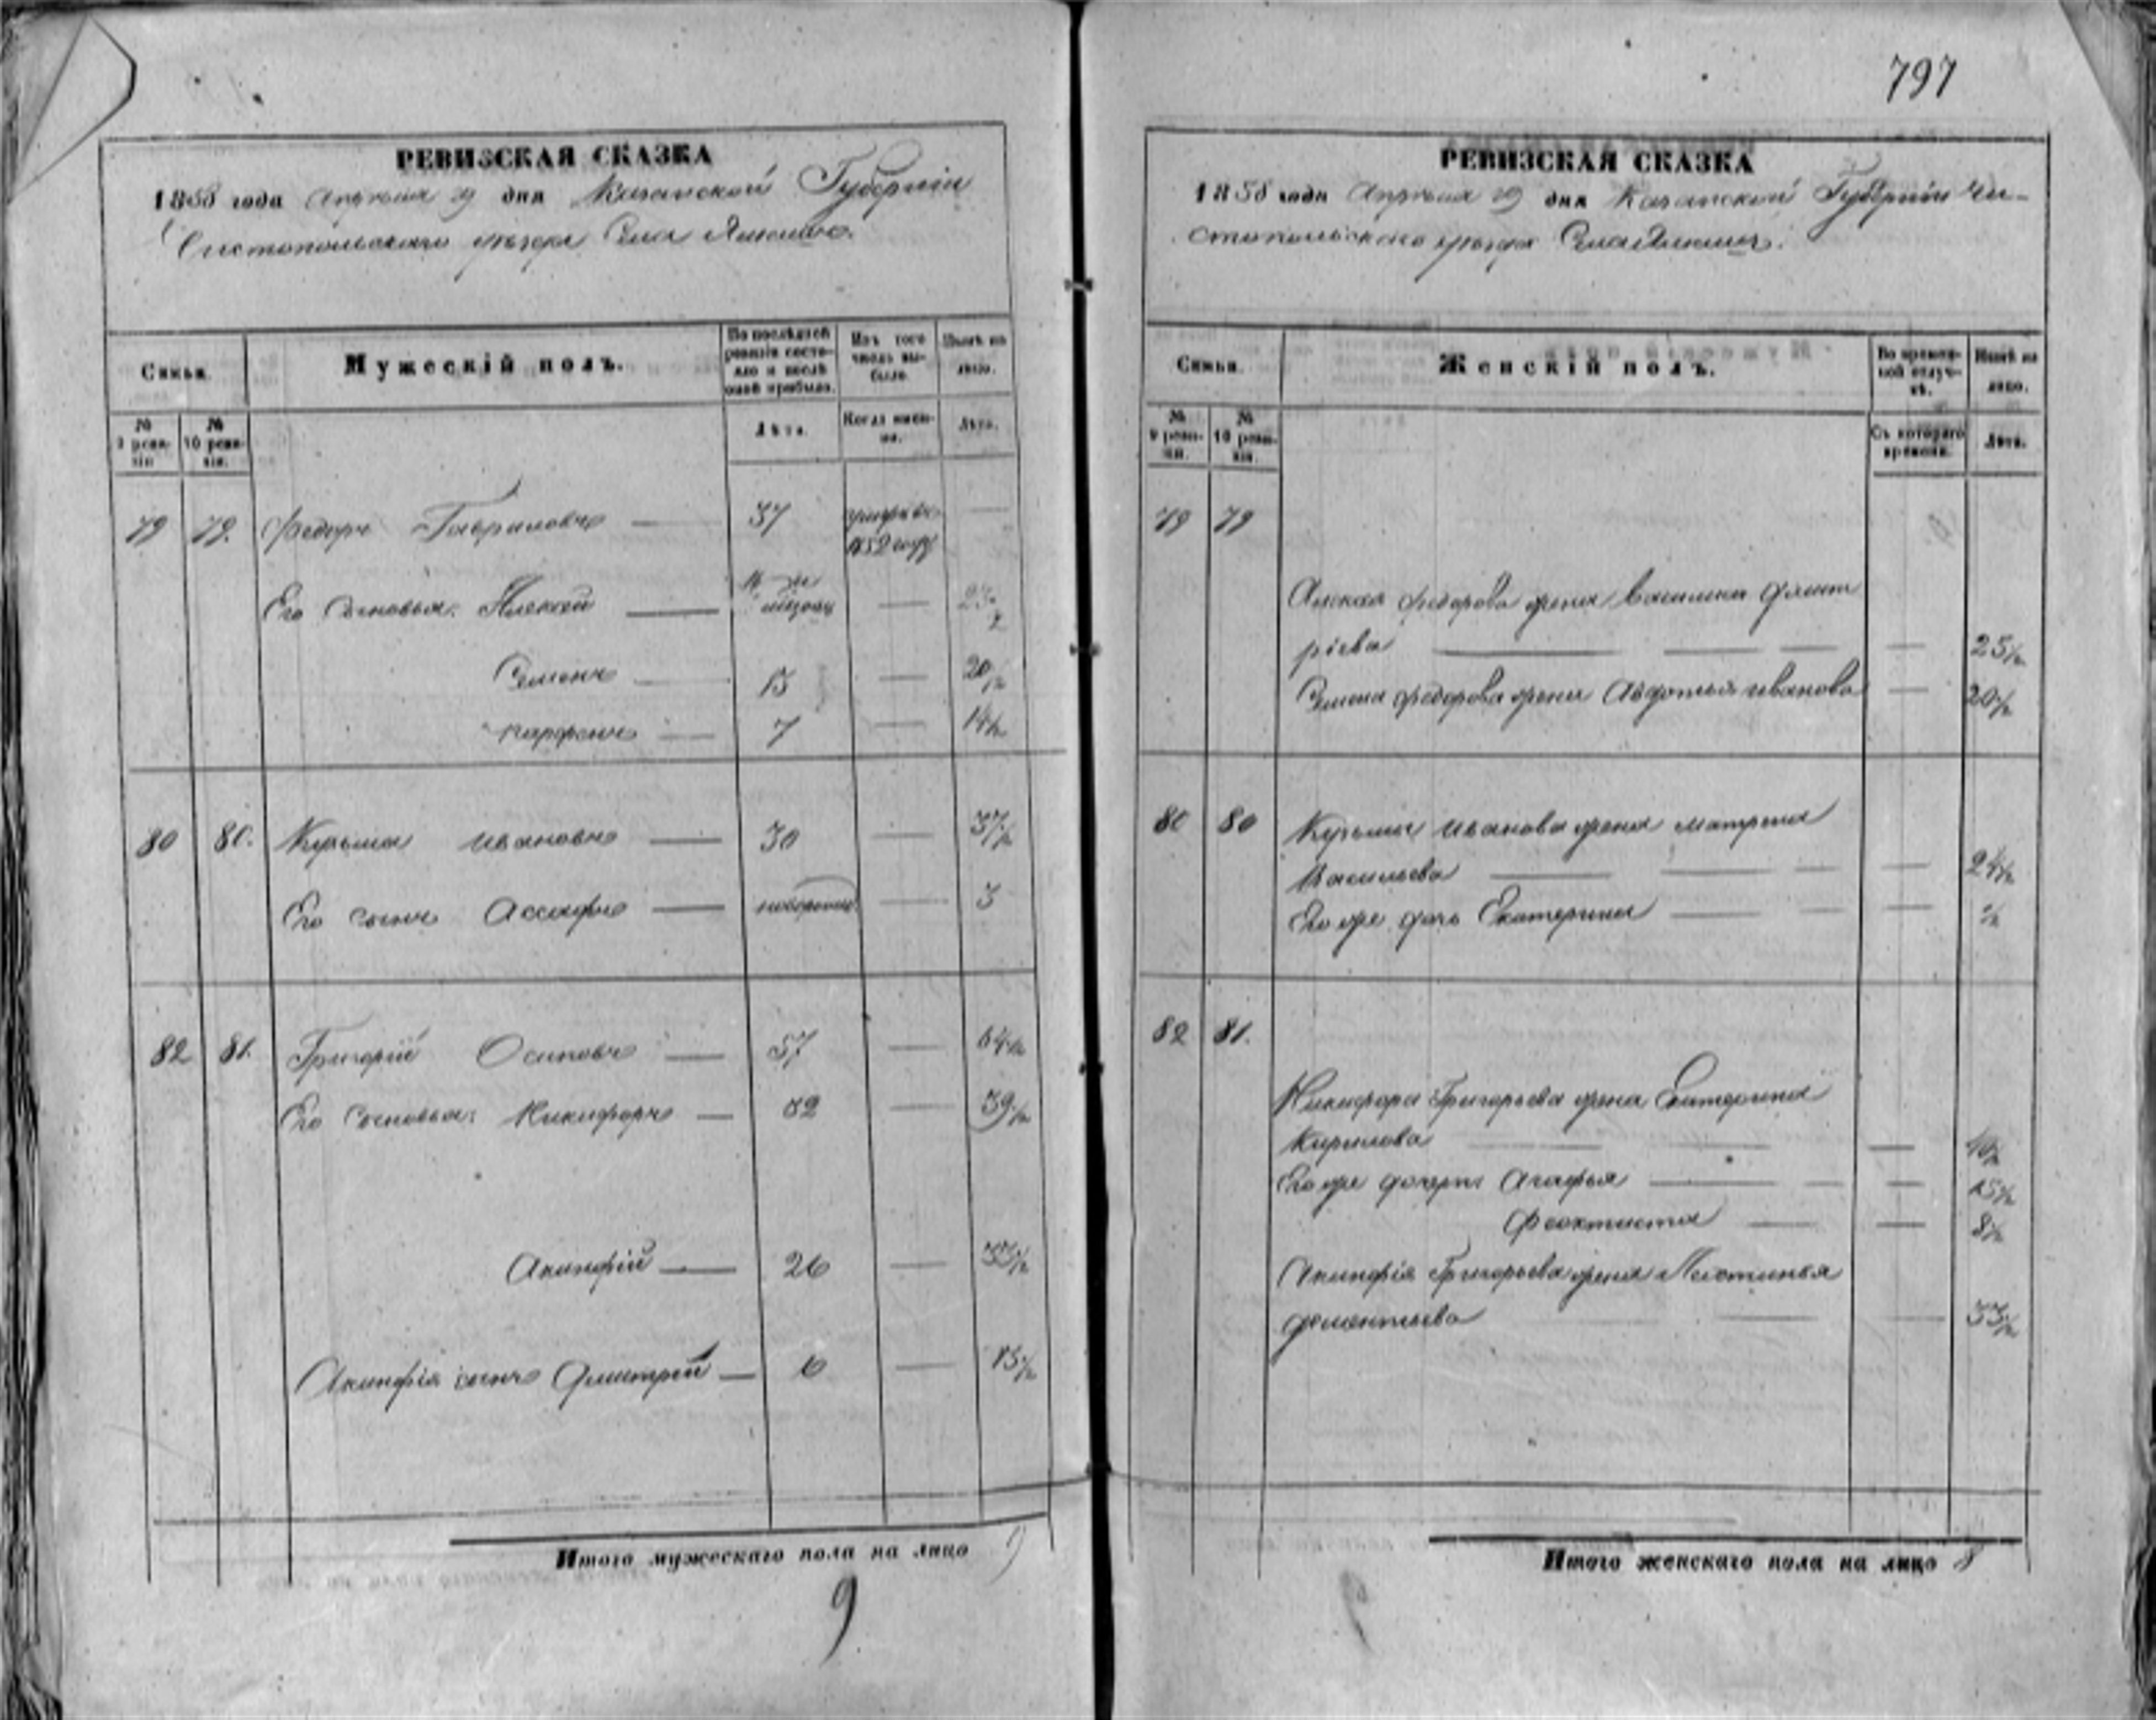 797
РЕВИЗСКАЯ СКАЗКА
1858 года Апреля 29 дня Казанской Губерніи
Чистопольскаго уезда Села
Семьи.
Мужескій полъ.
По послѣдней ревизіи состояло и послѣ оной прибыло.
Изъ того числа выбыло.
Нынѣ на лицо.
№ 9 ревизіи
№ 10 ревизіи.
Лѣта.
Когда именно.
Лѣта.
79 79. Федоръ Гавриловъ — 37 умеръ въ 1852 году —
Его Сыновья: Алексей —
Семенъ — 13 — 20 1/2
Парфенъ — 7 — 14 1/2
80 80. Кузьма Ивановъ — 30 — 37 1/2
Его сынъ Ассафъ — новорожд. — 3
82 81. Григорій Осиповъ — 57 — 64 1/2
Его Сыновья: Никифоръ — 32 — 39 1/2
Акинфій — 26 — 33 1/2
Акинфія сынъ Дмитрій — 6 — 13 1/2
Итого мужескаго пола на лицо 9
9
РЕВИЗСКАЯ СКАЗКА
1858 года Апреля 29 дня Казанской Губерніи Чи-
стопольскаго уезда Села
Семьи.
Женскій полъ.
Во временной отлучкѣ.
Нынѣ на лицо.
№ 9 ревизіи.
№ 10 ревизіи.
Съ котораго времени.
Лѣта.
79 79
Алексея Федорова жена Василиса Дмит
ріева — — — — 25 1/2
Семена Федорова жена Авдотья Иванова — 20 1/2
80 80 Кузьмы Иванова жена Матрена
Васильева — — — — 24 1/2
Его же дочь Екатерина — — — 1/2
82 81.
Никифора Григорьева жена Екатерина
Кирилова — — — 40 1/2
Его же дочери Агафья — — — 15 1/2
Феоктиста — — 8 1/2
Акинфія Григорьева жена Устинья
Дементьева — — 33 1/2
Итого женскаго пола на лицо 8